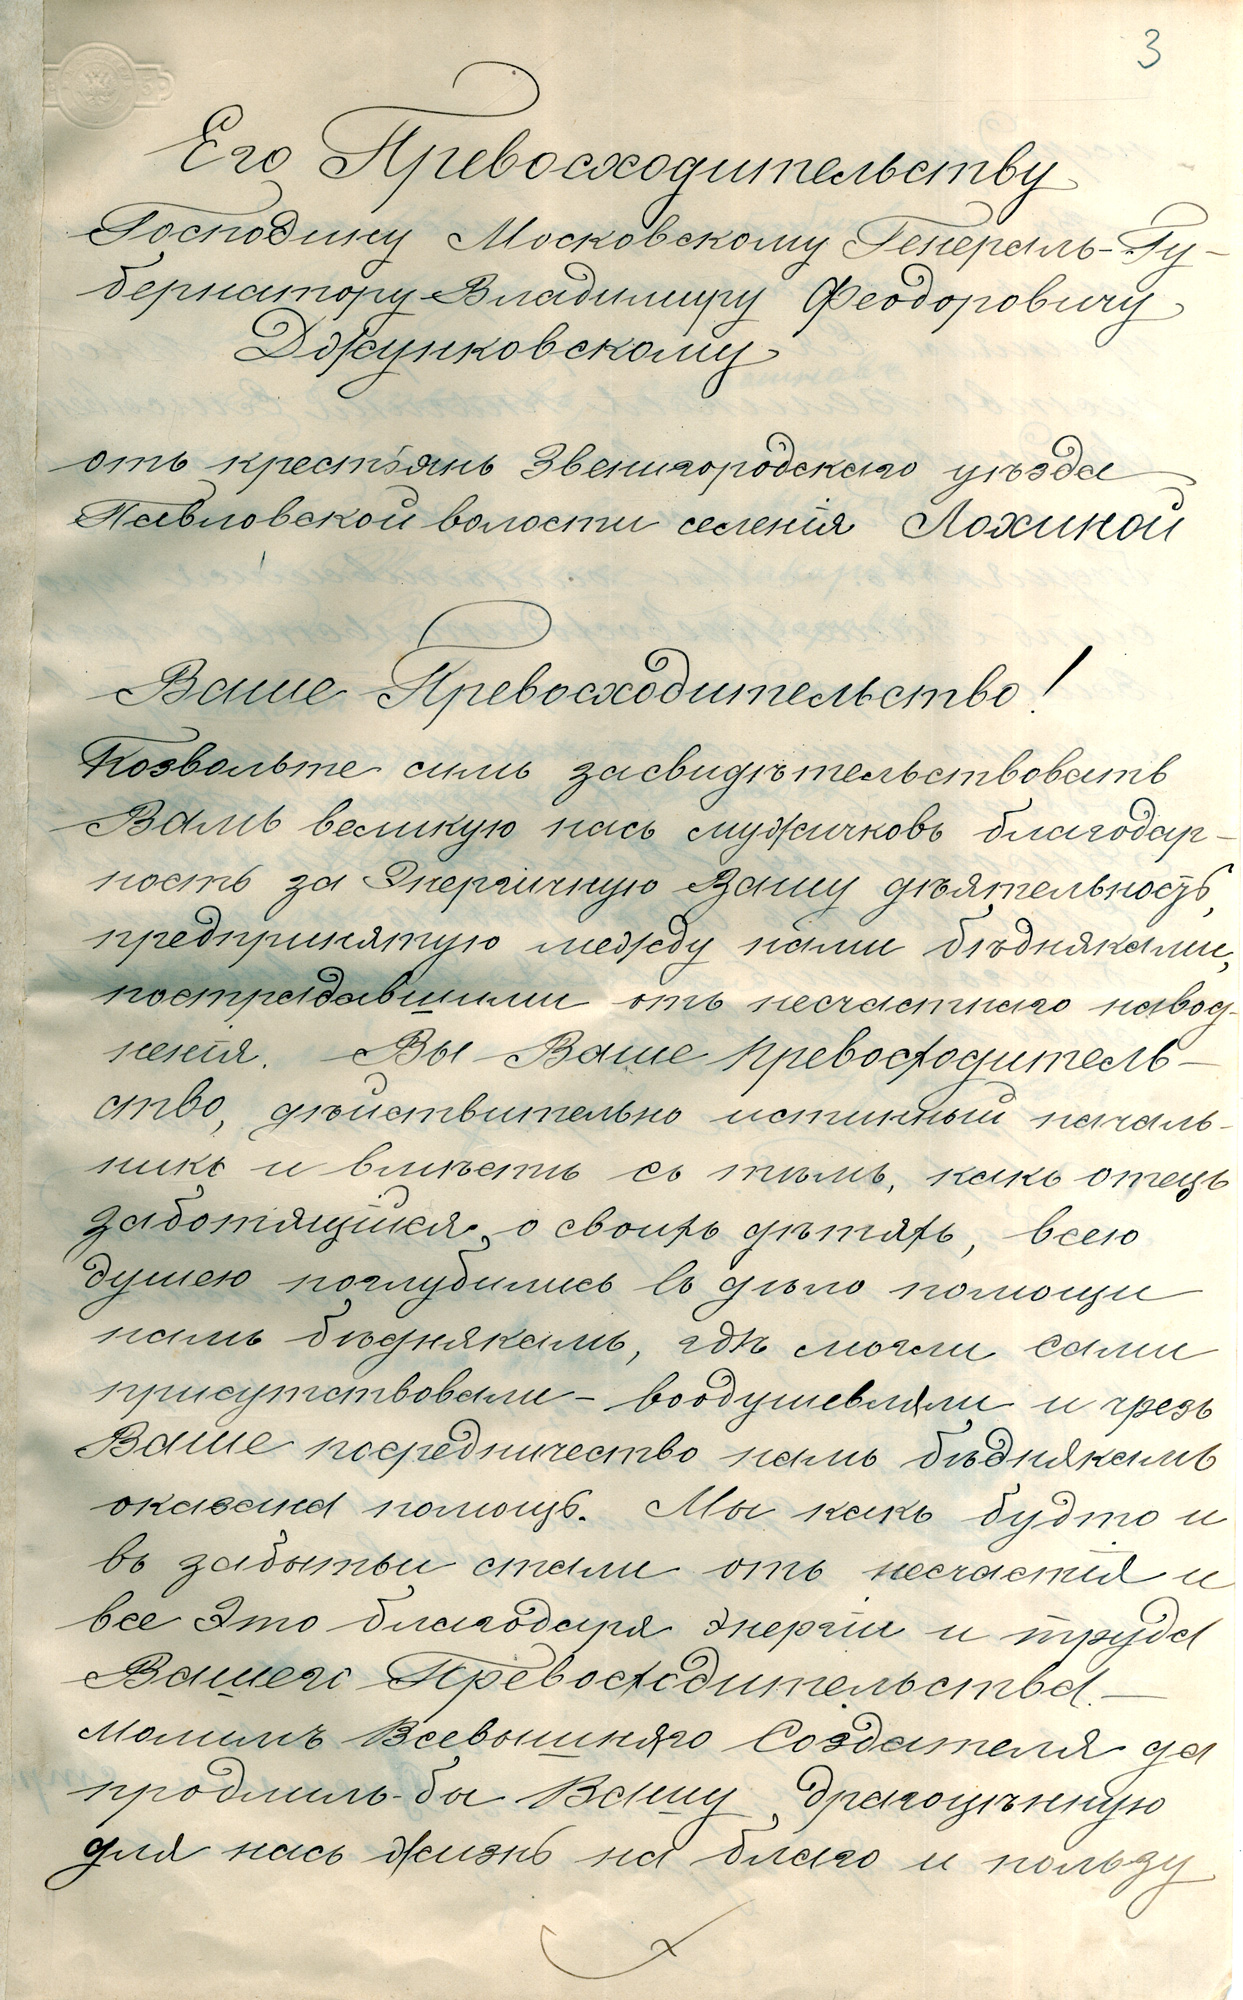 3
Его Превосходительству
Господину Московскому Генералъ-Гу-
бернатору Владимиру Феодоровичу
Джунковскому
отъ крестьянъ Звенигородскаго уѣзда
Павловской волости селенія Лохиной
Ваше Превосходительство!
Позвольте симъ засвидѣтельствовать
Вамъ великую насъ мужичковъ благодар-
ность за Энергичную Вашу дѣятельность,
предпринятую между нами бѣдняками,
пострадавшими отъ несчастнаго навод-
ненія. Вы Ваше Превосходитель-
ство, дѣйствительно истинный началь-
никъ и вмѣстѣ съ тѣмъ, какъ отецъ
заботящійся о своихъ дѣтяхъ, всею
душею поглубились въ дѣло помощи
намъ бѣднякамъ, гдѣ могли сами
присутствовали - воодушевляли и чрезъ
Ваше посредничество намъ бѣднякамъ
оказана помощь. Мы какъ будто и
въ забытьи стали отъ несчастія и
все Это благодаря энергіи и труда
Вашего Превосходительства. —
Молимъ Всевышняго Создателя да
продлилъ-бы Вашу драгоцѣнную
для насъ жизнь на благо и пользу